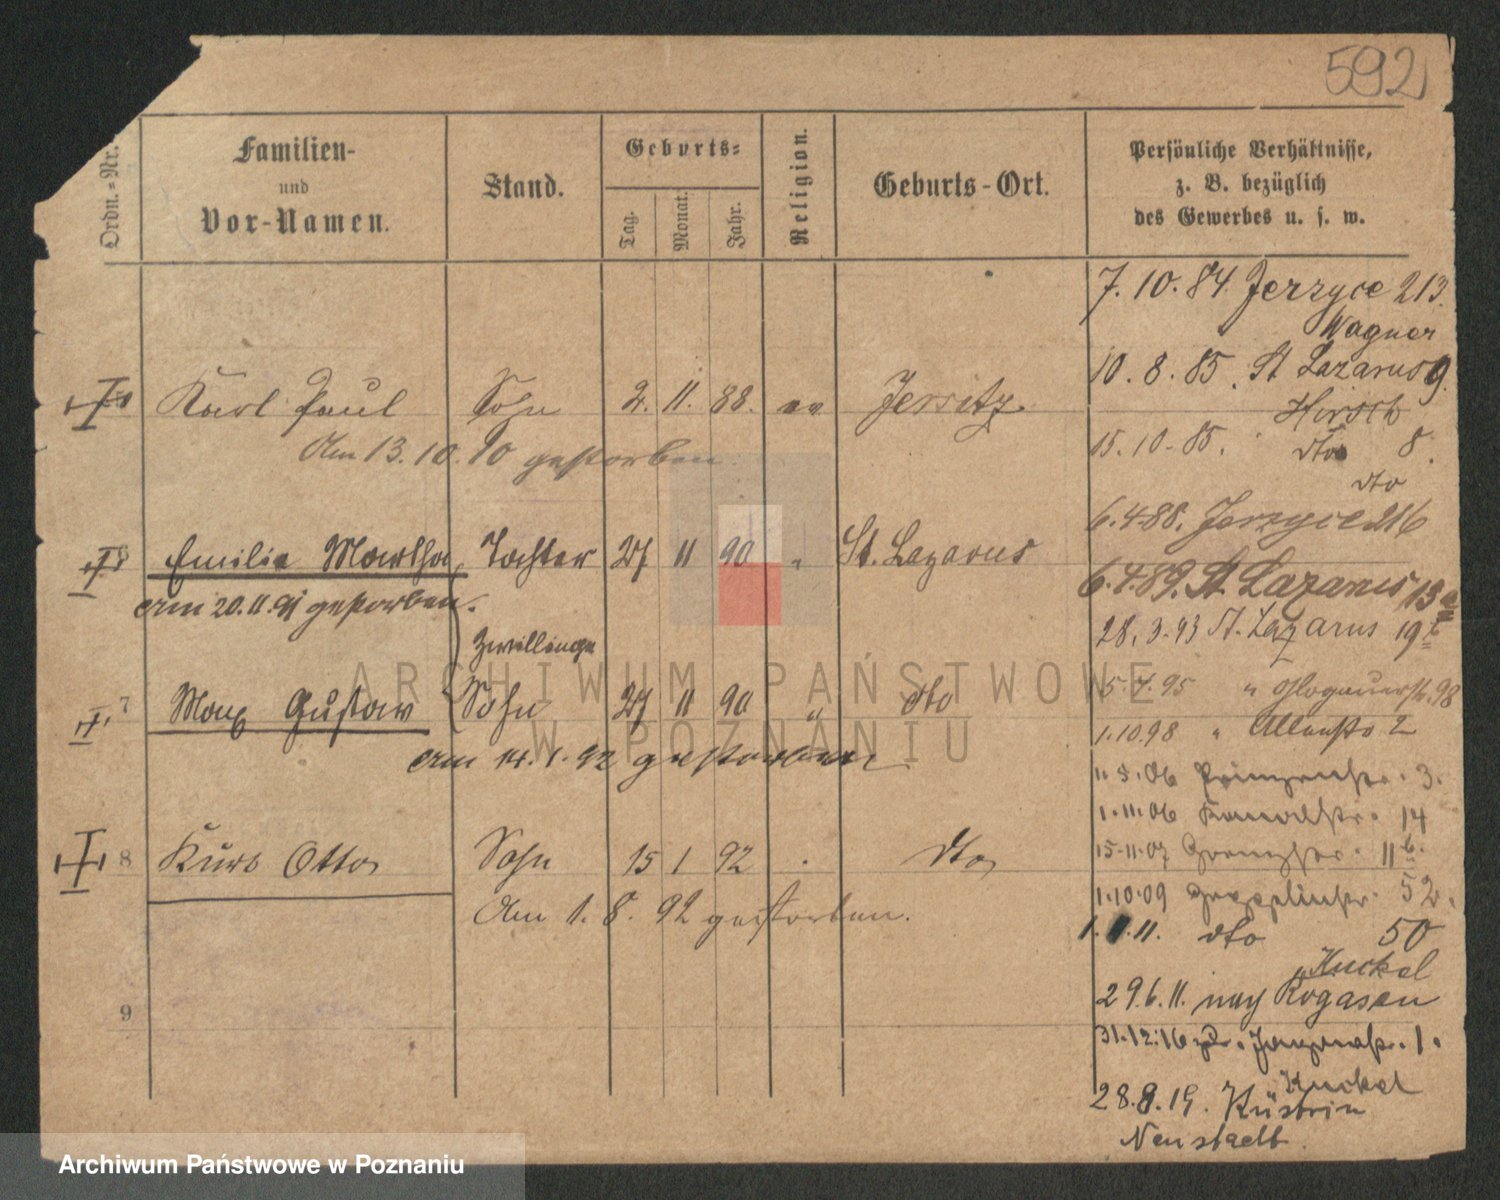 592
Ordn.=Nr.
Familien-
und
Vor-Namen.
Stand.
Geburts=
Tag.
Monat.
Jahr.
Religion.
Geburts-Ort.
Persönliche Verhältnisse,
z. B. bezüglich
des Gewerbes u. s. w.
7. 10. 84. Jerzyce 213.
Wagner
10. 8. 85. St Lazarus 9.
Hirsch
Karl Paul Sohn 2. 11. 88. ev Jersitz
Am 13. 10. 90 gestorben
15. 10. 85. dto 8.
dto
6. 4. 88. Jerzyce 216
Emilie Martha Tochter 27 11 90 " St. Lazarus
am 20. 11. 91 gestorben.
6. 4. 89. St Lazarus 13a
28. 3. 93 St. Lazarus 19b
Zwillinge
7 Max Gustav Sohn 27 11 90 " dto
am 14. 1. 92 gestorben
5. 4. 95 " Glogauerstr. 98
1. 10. 98 "
1. 5. 06 Prinzenstr. 3.
1. 11. 06 Kanalstr. 14
8 Kurt Otto Sohn 15 1 92 dto
Am 1. 8. 92 gestorben.
15. 11. 07 11b.
1. 10. 09 52.
11. dto 50
Kuckel
29. 6. 11. nach Rogasen
9
31. 12. 16 1.
Kuckel
28. 9. 19. Küstrin
Neustadt
ARCHIWUM PAŃSTWOWE
W POZNANIU
Archiwum Państwowe w Poznaniu